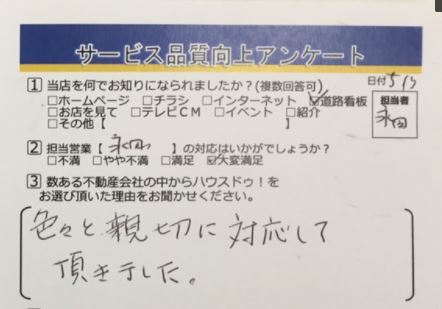 サービス品質向上アンケート
1 当店を何でお知りになられましたか？(複数回答可)
日付 5/3
□ホームページ □チラシ □インターネット ☑道路看板
□お店を見て □テレビCM □イベント □紹介
□その他【
担当者
永田
2 担当営業【 永田 】の対応はいかがでしょうか？
□不満 □やや不満 □満足 ☑大変満足
3 数ある不動産会社の中からハウスドゥ！を
お選び頂いた理由をお聞かせください。
色々と親切に対応して
頂きました。